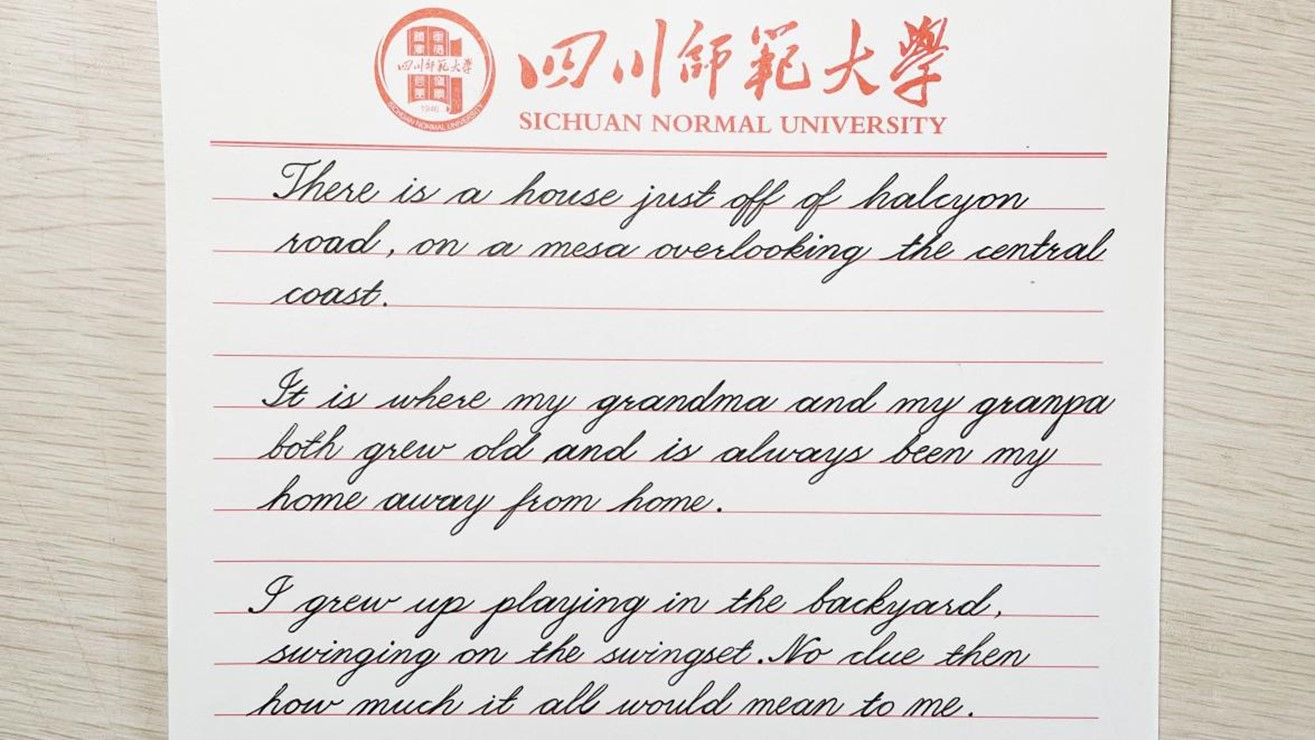 四川師範大學
SICHUAN NORMAL UNIVERSITY
四川师范大学
1946
SICHUAN NORMAL UNIVERSITY
There is a house just off of halcyon
road, on a mesa overlooking the central
coast.
It is where my grandma and my granpa
both grew old and is always been my
home away from home.
I grew up playing in the backyard,
swinging on the swingset. No clue then
how much it all would mean to me.